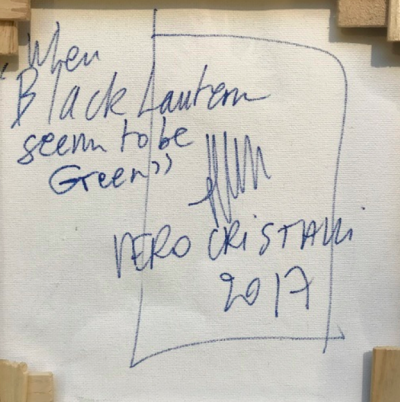 "When
Black Lantern
seem to be
Green"
VERO CRISTALLI
2017